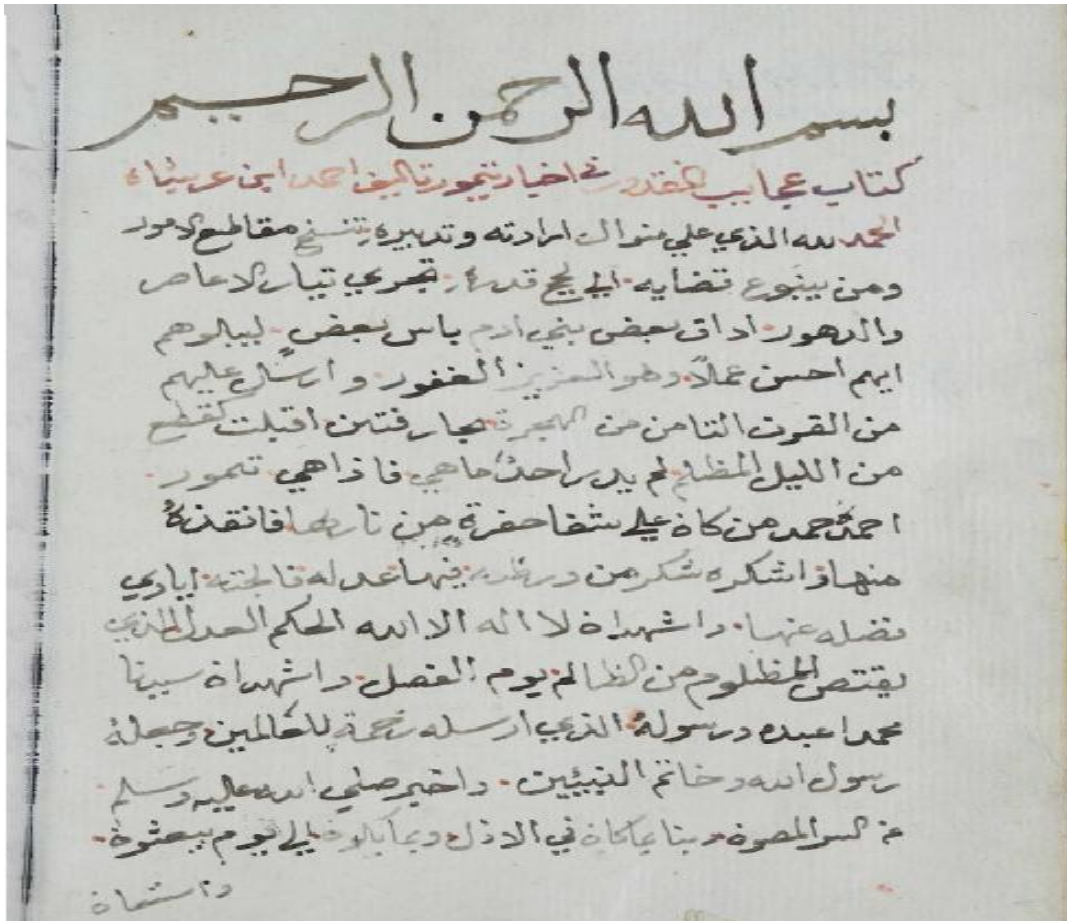 بسم الله الرحمن الرحيم
كتاب عجايب المقدور في اخبار تيمور تاليف احمد ابن عربشاه
الحمد لله الذي علي منوال ارادته وتدبيره تنسج مقاطع الامور
ومن ينبوع قضايه الي لجج قدره تجري تيار الاعاصر
والدهور اداق بعض بني ادم باس بعض ليبلوهم
ايهم احسن عملاً وهو العزيز الغفور وارسل عليهم
من القرن الثامن من الهجرة بحار فتن اقبلت كقطع
من الليل المظلم لم يدر احد ما هي فاذا هي تمور
احمدهٔ حمد من كان علي شفا حفرة من نارها فانقذهٔ
منها واشكره شكر من فيها عدله ايادي
فضله عنها واشهد ان لا اله الا الله الحكم العدل الذي
يقتص للمظلوم من الظالم يوم الفصل واشهد ان سيدنا
محمدا عبده ورسولهٔ الذي ارسله رحمة للعالمين وجعلهٔ
رسول الله وخاتم النبيين واخبر صلي الله عليه وسلم
عن السر المصون بما كان في الازل وبما يكون الي يوم يبعثون